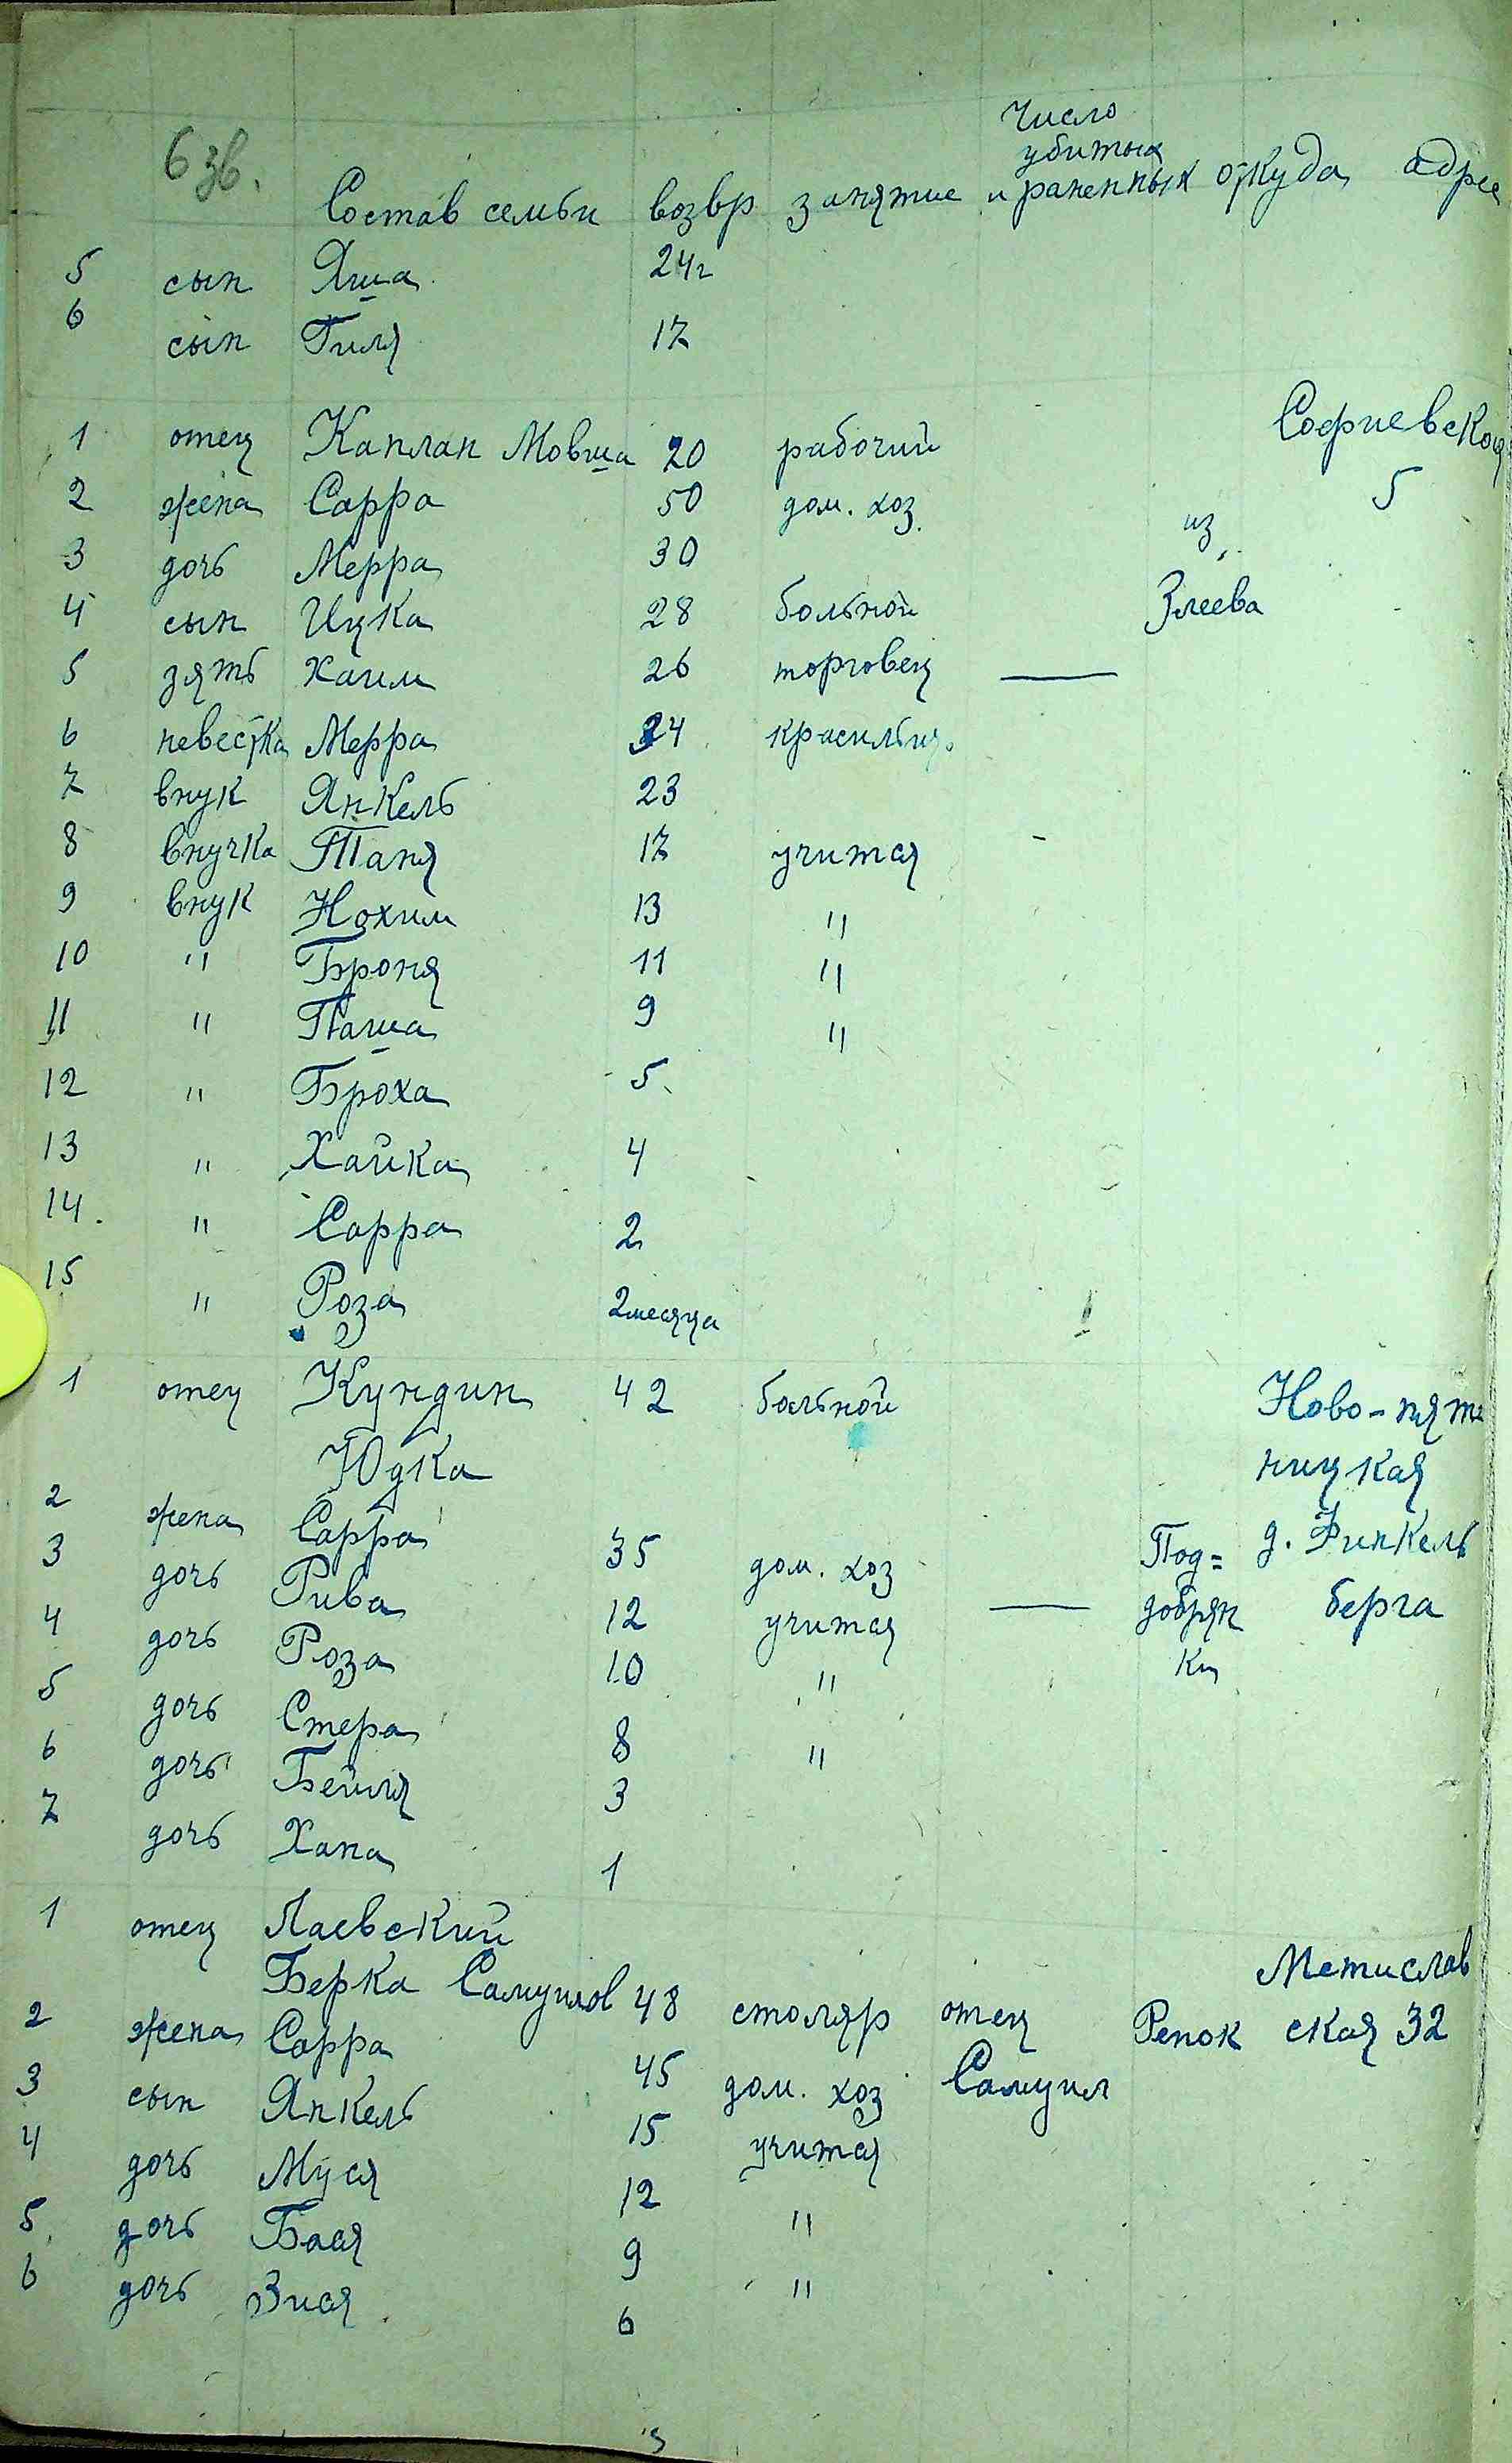 6 зв.
Число
убитых
Состав семьи возвр занятие и раненных откуда адрес
5 сын Яша 24г
6 сын Гиля 17
1 отец Каплан Мовша 20 рабочий Софиевской
2 жена Сарра 50 дом. хоз. 5
3 дочь Мерра 30 из
4 сын Ицка 28 больной Злеева
5 зять Хаим 26 торговец —
6 невестка Мерра 24 красильщ.
7 внук Янкель 23
8 внучка Таня 17 учится
9 внук Нохим 13 "
10 " Броня 11 "
11 " Паша 9 "
12 " Броха 5
13 " Хайка 4
14. " Сарра 2
15 " Роза 2 месяца
1 отец Кундин 42 больной Ново-пят
Юдка ницкая
2 жена Сарра 35 дом. хоз Под= д. Финкель
3 дочь Рива 12 учится — добрян берга
4 дочь Роза 10 " ки
5 дочь Стера 8 "
6 дочь Бейля 3
7 дочь Хана 1
1 отец Лаевский
Берка Самуилов 48 столяр отец Репок Мстислав
2 жена Сарра 45 дом. хоз Самуил ская 32
3 сын Янкель 15 учится
4 дочь Муся 12 "
5 дочь Бася 9 "
6 дочь Зися 6